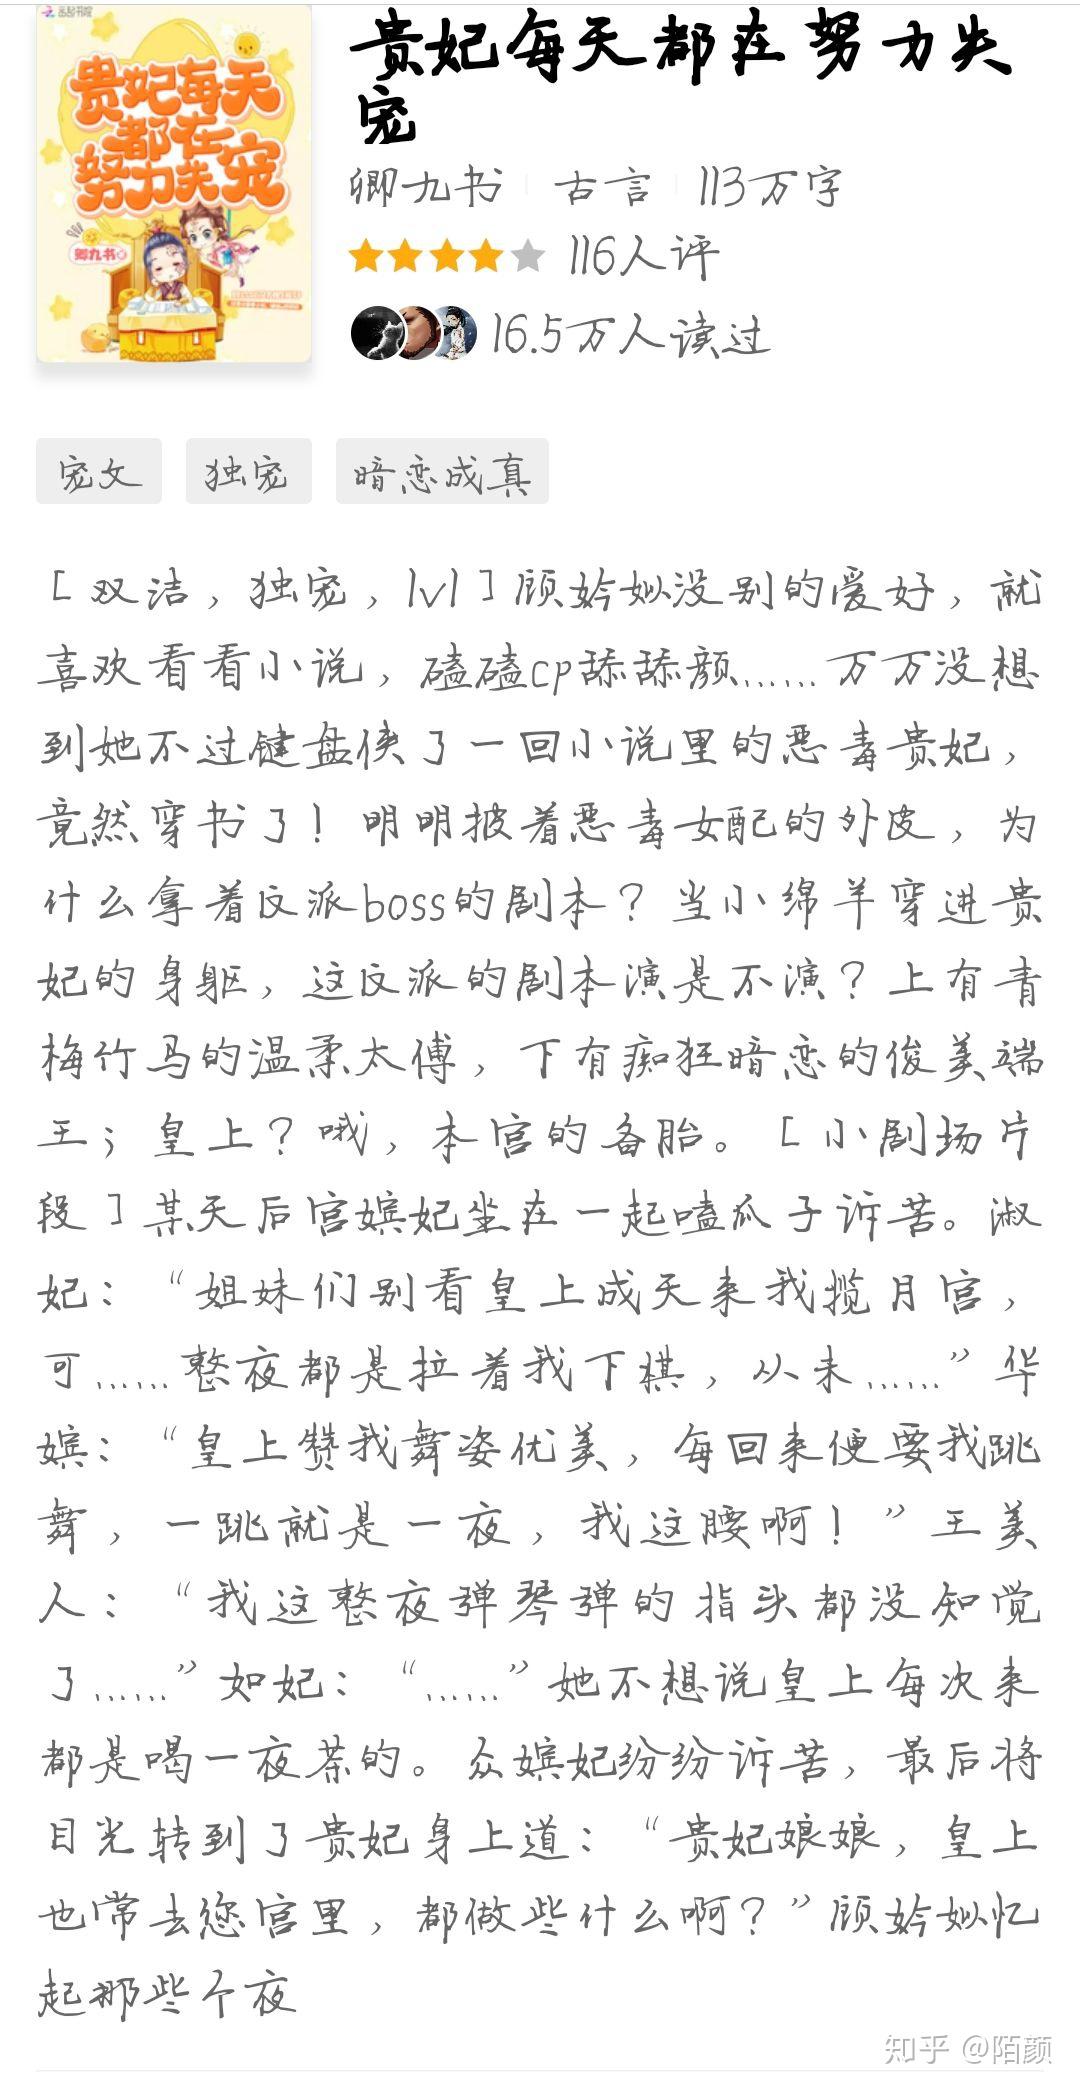 贵妃每天
都在
努力失宠
卿九书
贵妃每天都在努力失
宠
卿九书 古言 113万字
116人评
16.5万人读过
宠文 独宠 暗恋成真
[双洁，独宠，1v1]顾妗姒没别的爱好，就
喜欢看看小说，磕磕cp舔舔颜……万万没想
到她不过键盘侠了一回小说里的恶毒贵妃，
竟然穿书了！明明披着恶毒女配的外皮，为
什么拿着反派boss的剧本？当小绵羊穿进贵
妃的身躯，这反派的剧本演是不演？上有青
梅竹马的温柔太傅，下有痴狂暗恋的俊美端
王；皇上？哦，本宫的备胎。[小剧场片
段]某天后宫嫔妃坐在一起嗑瓜子诉苦。淑
妃：“姐妹们别看皇上成天来我揽月宫，
可……整夜都是拉着我下棋，从未……”华
嫔：“皇上赞我舞姿优美，每回来便要我跳
舞，一跳就是一夜，我这腰啊！”王美
人：“我这整夜弹琴弹的指头都没知觉
了……”如妃：“……”她不想说皇上每次来
都是喝一夜茶的。众嫔妃纷纷诉苦，最后将
目光转到了贵妃身上道：“贵妃娘娘，皇上
也常去您宫里，都做些什么啊？”顾妗姒忆
起那些个夜
知乎 @陌颜